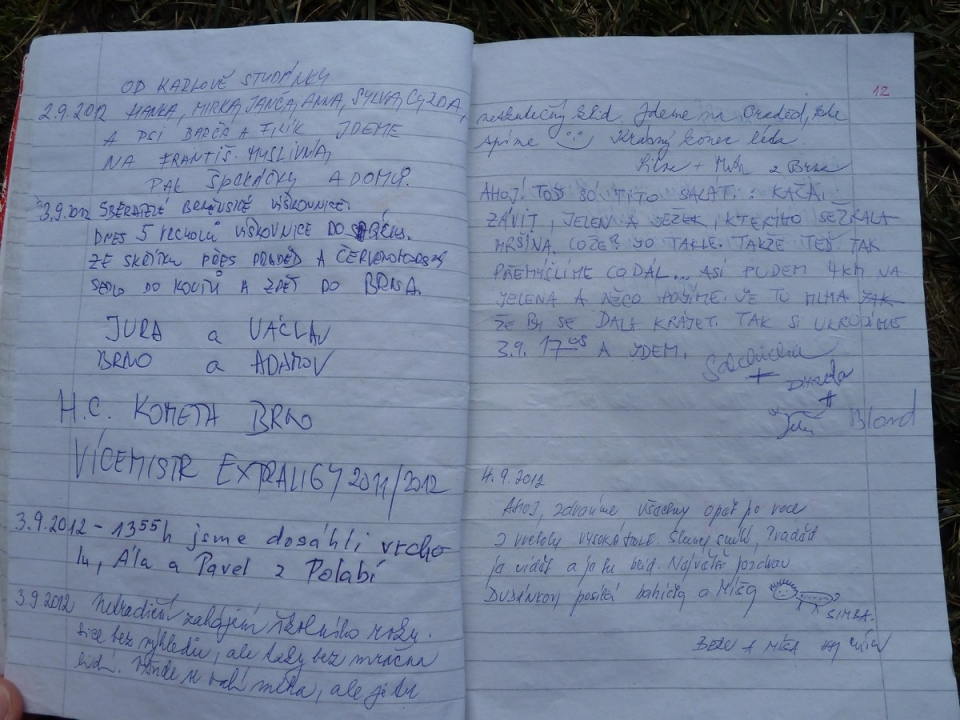 OD KARLOVĚ STUDÁNKY
2.9.2012 HANKA, MIRKA, JANČA, ANNA, SYLVA,
A PSI BARČA A FILÍK JDEME
NA FRANTIŠ. MYSLIVNA,
PAK ŠPEKÁČKY A DOMŮ.
3.9.2012 SBĚRATELÉ VIŠKOVNICE.
DNES 5 VRCHOLŮ VIŠKOVNICE DO
ZE SKŘÍTKU PŘES PRADĚD A
SEDLO DO KOUTŮ A ZPĚT DO BRNA.
JURA a VÁCLAV
BRNO a ADAMOV
H.C. KOMETA BRNO
VÍCEMISTR EXTRALIGY 2011/2012
3.9.2012 - 13⁵⁵h jsme dosáhli vrcho
lu, Ála a Pavel z Polabí
3.9 2012 Netradiční zahájení školního roku.
Sice bez výhledu, ale taky bez mračna
lidí. se valí mlha, ale je tu
12
neskutečný klid. Jdeme na Praděd, kde
spíme Krásný konec léta.
+ z Brna
AHOJ. TOŽ SO TYTO SALATI: KAČKA,
ZÁVIT, JELEN A JEŽEK, KTERÝHO SEŽRALA
MRŠINA. COŽEB JO TAKLE. TAKŽE TEŠ TAK
PŘEMYŠLIME CO DÁL... ASI PUDEM 4KM NA
JELENA A NĚCO POJÍME. JE TU MLHA ŽAK
ŽE BY SE DALA KRÁJET. TAK SI UKROJÍME
3.9. 17⁰⁵ A JDEM.
+
+
Blond
4.9.2012
AHOJ, zdravíme všechny opět po roce
z vrcholu VYSOKÉ HOLE. Slunce svítí, Praděd
je vidět a je tu klid. Největší pozdrav
posílá babička a Míša
SIMBA.
A MÍŠA